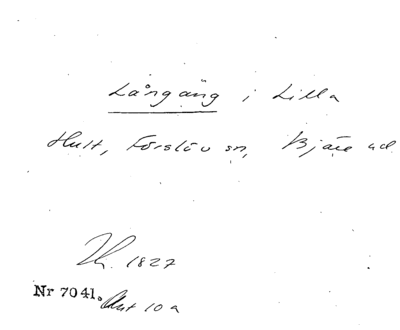 Långäng i Lilla
Hult, Förslöv sn, Bjäre hd
1827
Nr 7041. Akt 10a